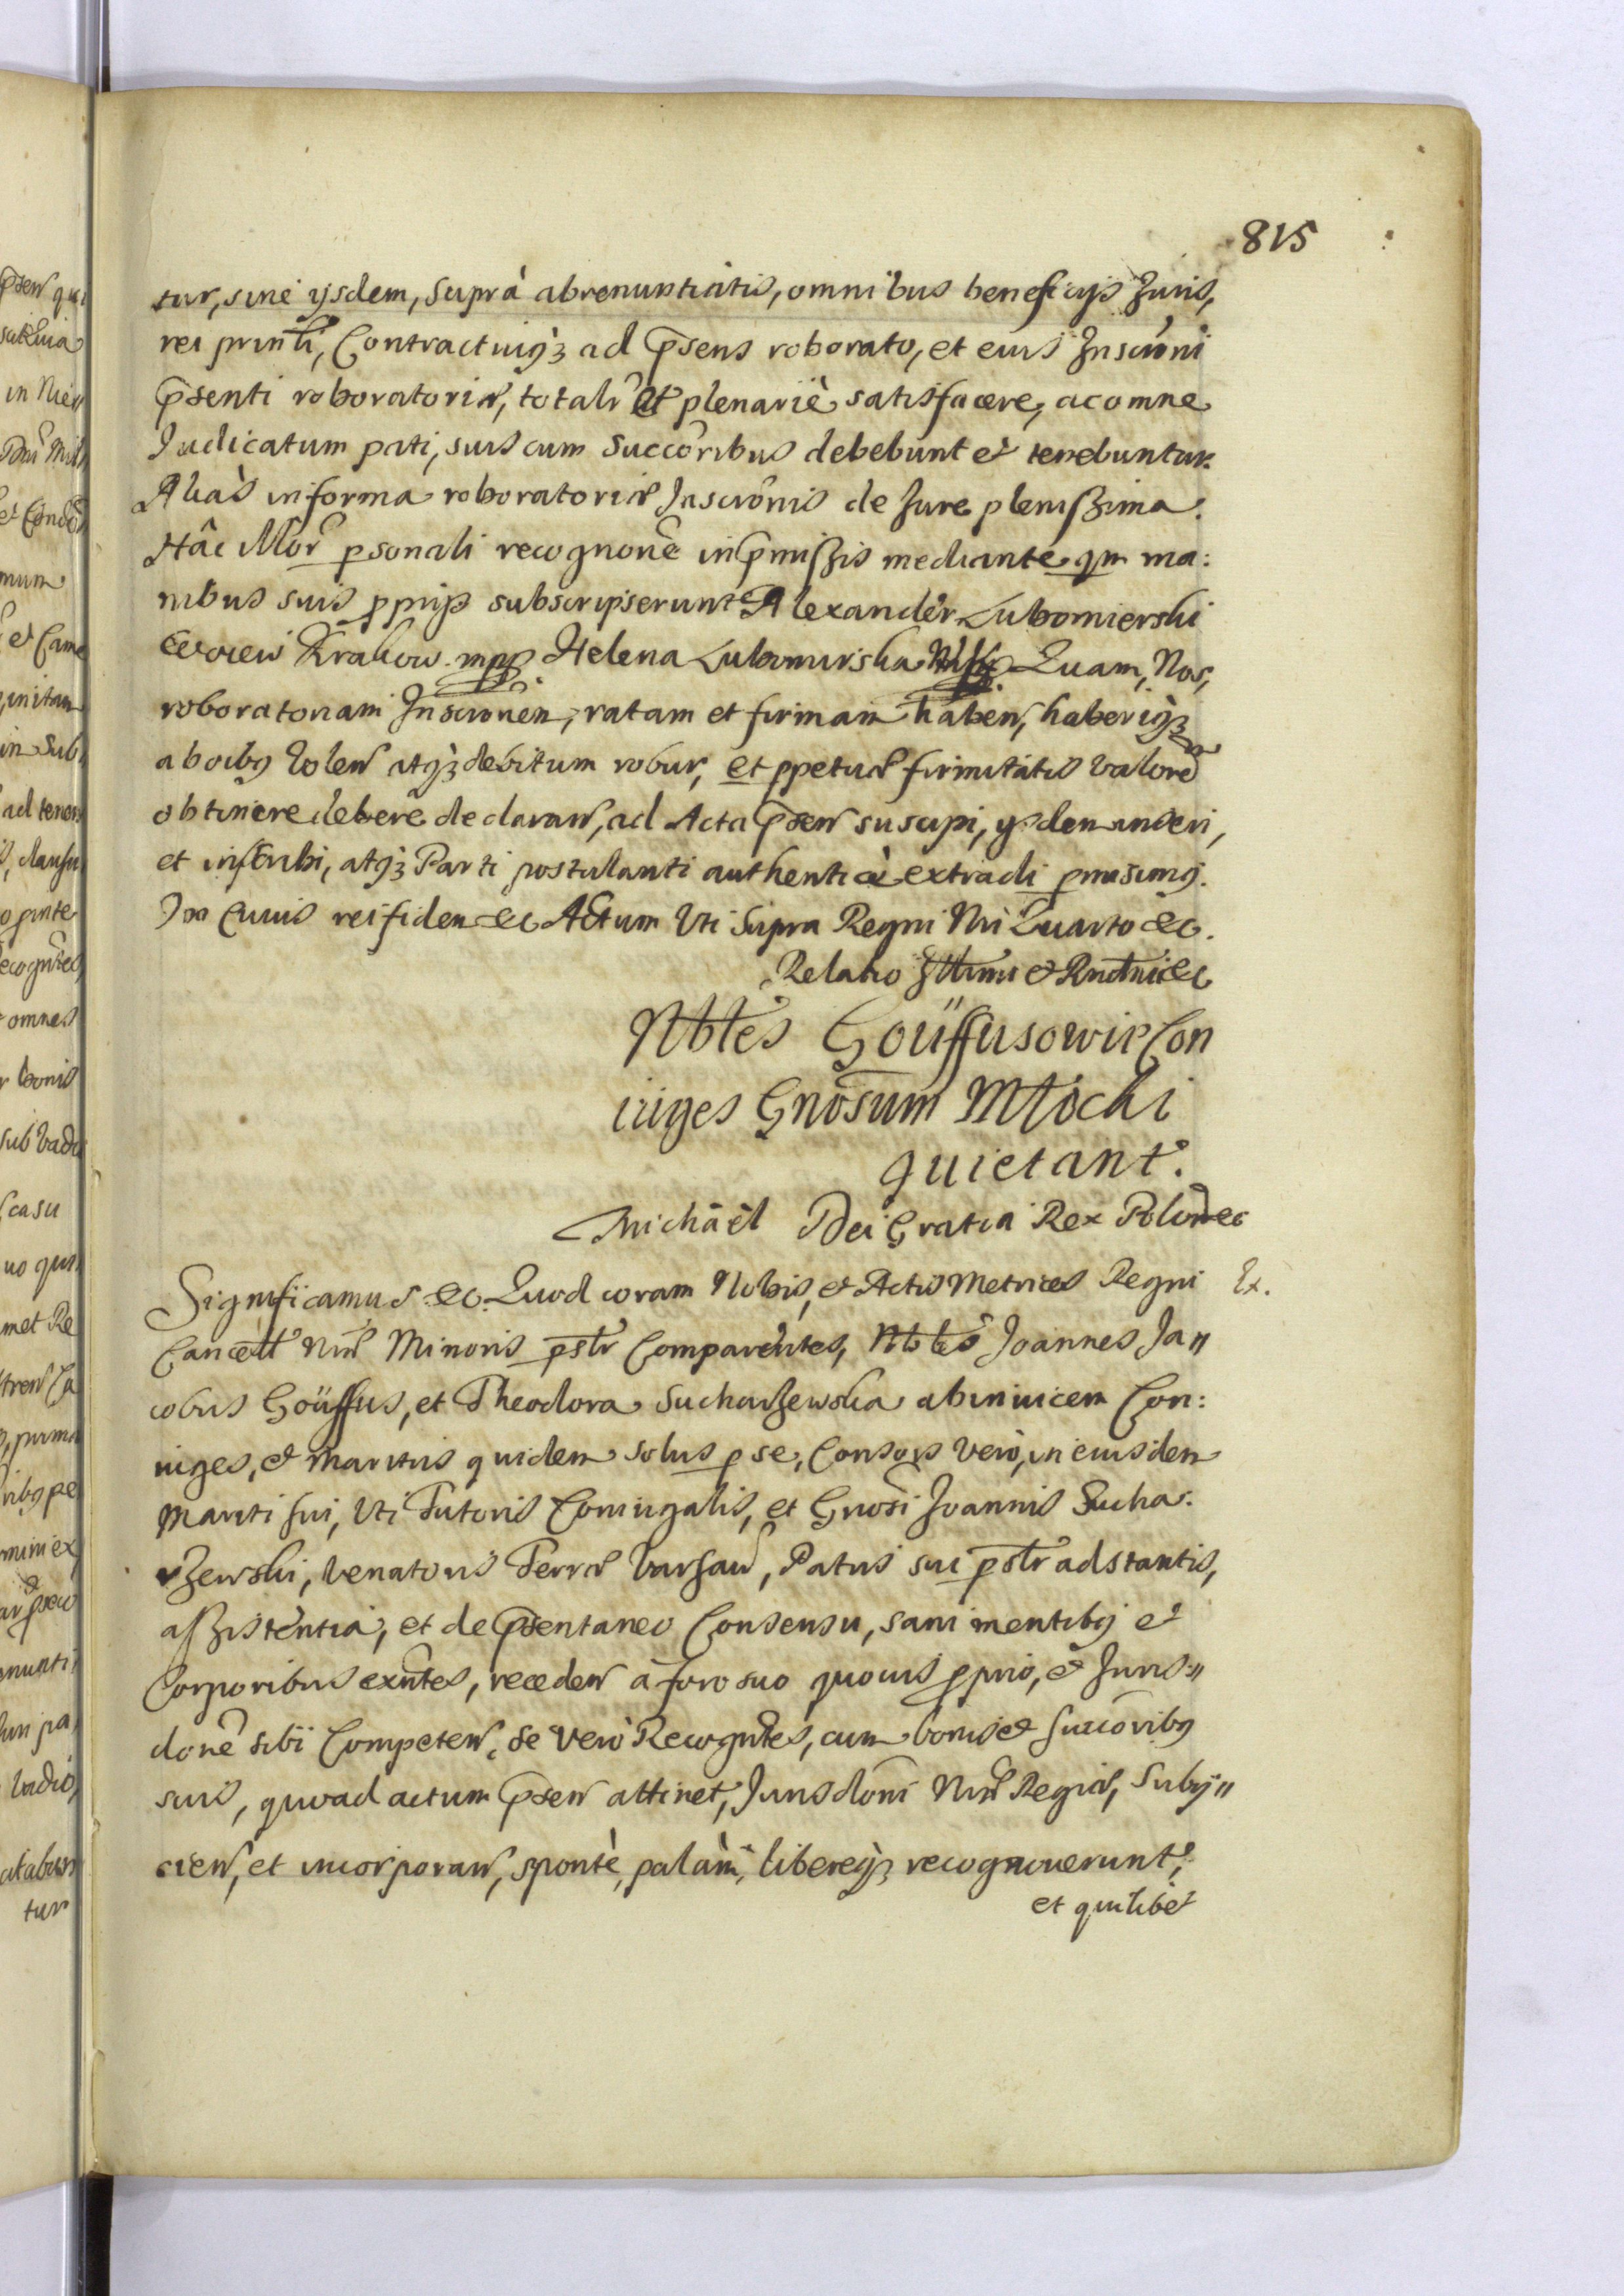 815
tur, sine ijsdem, suprà abrenuntiatis, omnibus beneficijs Juris,
rei prinli, Contractuiq₃ ad p̄sens roborato, et eius Inscrōni
p̄senti roboratoriæ, totalr̄ et plenariè satisfacere, ac omne
Judicatum pati, suis cum Succōribus debebunt et tenebuntur.
Aliàs in forma roboratoriæ Inscrōnis de Jure plenissima.
Hâc Mor̄ psonali recognōne in p̄missis mediante, qm̄ ma:
nibus suis pprijs subscripserunt Alexander Lubomierski
Krakow. mpp Helena Lubomirska Quam, Nos,
roboratoriam Inscrōnem, ratam et firmam haben, haberiq₃
ab oibq volen atq₃ debitum robur, et ppetuæ firmitatis valorē
obtinere debere declaran, ad Acta p̄sen suscipi, ysdem inseri,
et inscribi, atq₃ Parti postulanti authenticè extradi pmisimq.
In Cuius rei fidem &c Actum Vti Supra Regni Nri Quarto &c.
Relatio Illmi et Rndmi &c
Nbles Goüffusowie Con
iuges Gnōsum Młocki
quietant.
Michäël Dei Gratia Rex Polon &c
Significamus &c. Quod coram Nobis, et Actis Metrices Regni Ex.
Cancell Nræ Minoris pslr Comparentes, Nbles Joannes Ja〃
cobus Goüffus, et Theodora Sucharzewska ab inuicem Con:
iuges, et Maritus quidem solus p se, Consors verò, in eiusdem
Mariti sui, Vti Tutoris Coniugalis, et Gnōsi Joannis Sucha:
rzewski, Venatoris Terræ Varsaw, Patris sui pslr adstantis,
assistentia, et de p̄sentaneo Consensu, sani mentibq et
Corporibus exntes, receden à foro suo quouis pprio, et Juris〃
dōne sibi Competen, se verò Recognntes, cum bonis et succōribq
suis, quoad actum p̄sen attinet, Jurisdōni Nræ Regiæ, Subij〃
cien, et incorporan, spontè, palàm, liberèq₃ recognouerunt,
et quilibet